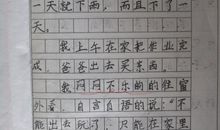 一天就下雨，而且下了一
天。
我上午在家把作业完
成，爸爸出去买东西。
我闷闷不乐的的往窗
外看，自言自语的说：“不
能出去玩了，只能在家里